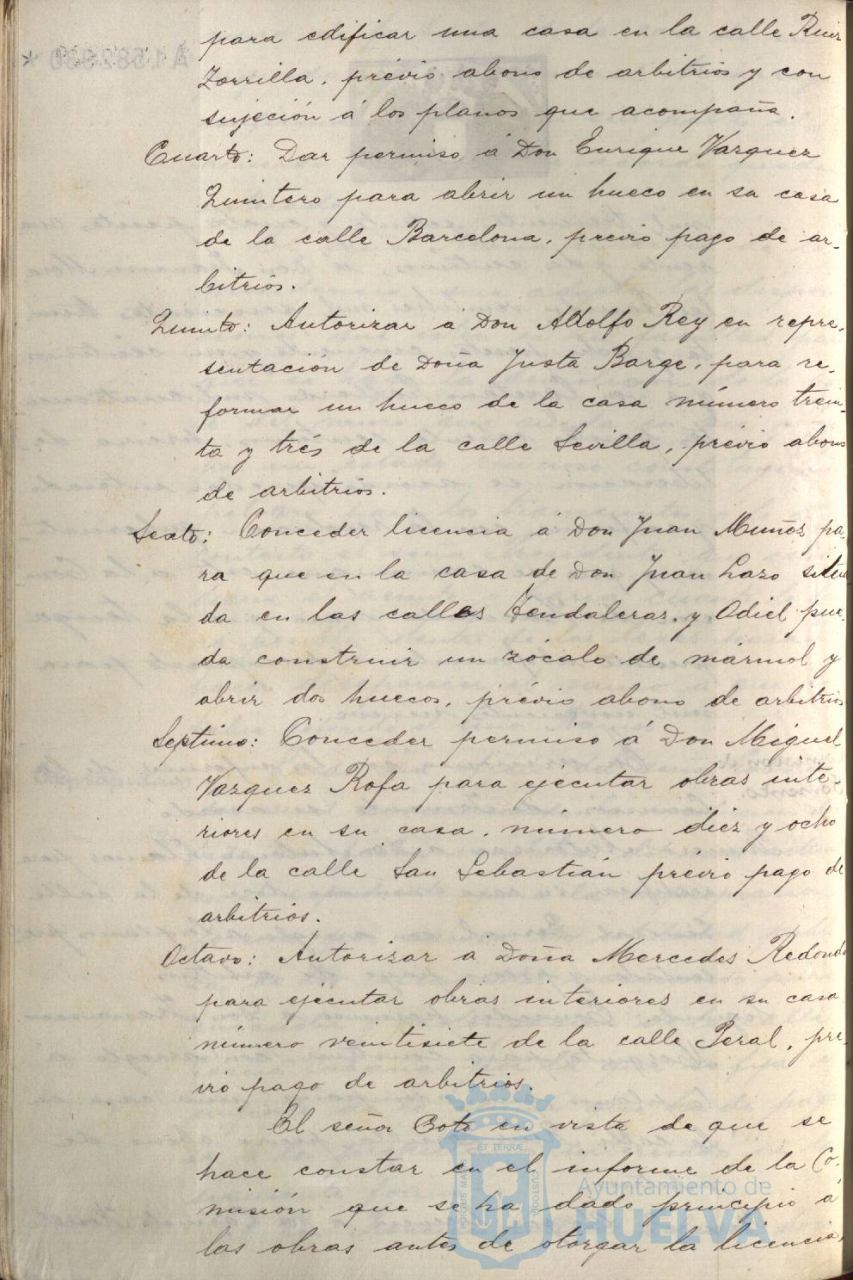 para edificar una casa en la calle Ruiz
Zorrilla, prévio abono de arbitrios y con
sujeción á los planos que acompaña.
Cuarto: Dar permiso á Don Enrique Vazquez
Quintero para abrir un hueco en su casa
de la calle Barcelona, previo pago de ar-
bitrios.
Quinto: Autorizar á Don Adolfo Rey en repre-
sentación de Doña Justa Barge, para re-
formar un hueco de la casa número trein-
ta y trés de la calle Sevilla, prévio abono
de arbitrios.
Sexto: Conceder licencia á Don Juan Muñoz pa-
ra que en la casa de Don Juan Lazo situa
da en las calles Tendaleras, y Odiel pue-
da construir un zócalo de mármol y
abrir dos huecos, prévio abono de arbitrios
Septimo: Conceder permiso á Don Miguel
Vazquez Rofa para ejecutar obras inte-
riores en su casa, número diez y ocho
de la calle San Sebastián prévio pago de
arbitrios.
Octavo: Autorizar á Doña Mercedes Redondo
para ejecutar obras interiores en su casa
número veintisiete de la calle Peral, pre-
vio pago de arbitrios.
El señor Coto en vista de que se
hace constar en el informe de la Co-
misión que se ha dado principio á
las obras antes de otorgar la licencia,
A1.582.930 *
ET TERRÆ
PORTUS MARIS
CUSTODIA
Ayuntamiento de
HUELVA